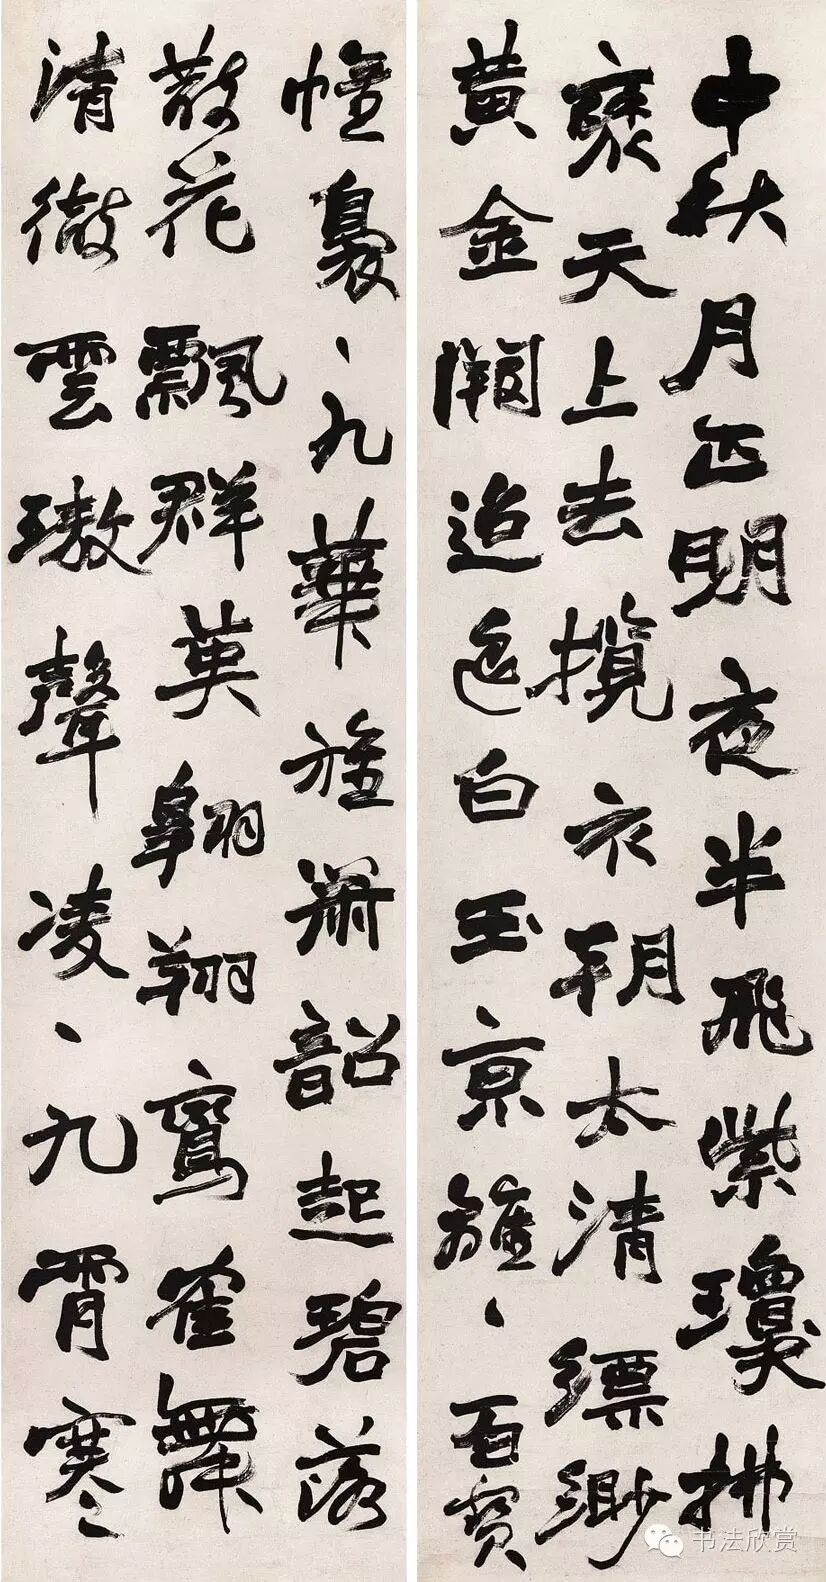 中秋月正明夜半飛紫瓊拂
天上去攬衣朝太清縹緲
黃金闕迢迢白玉京雍、百寶
幢裊、九華旌簫韶起碧落
散花飄群英翱翔鸞雀舞
清徹雲璈聲凌、九霄寒
书法欣赏